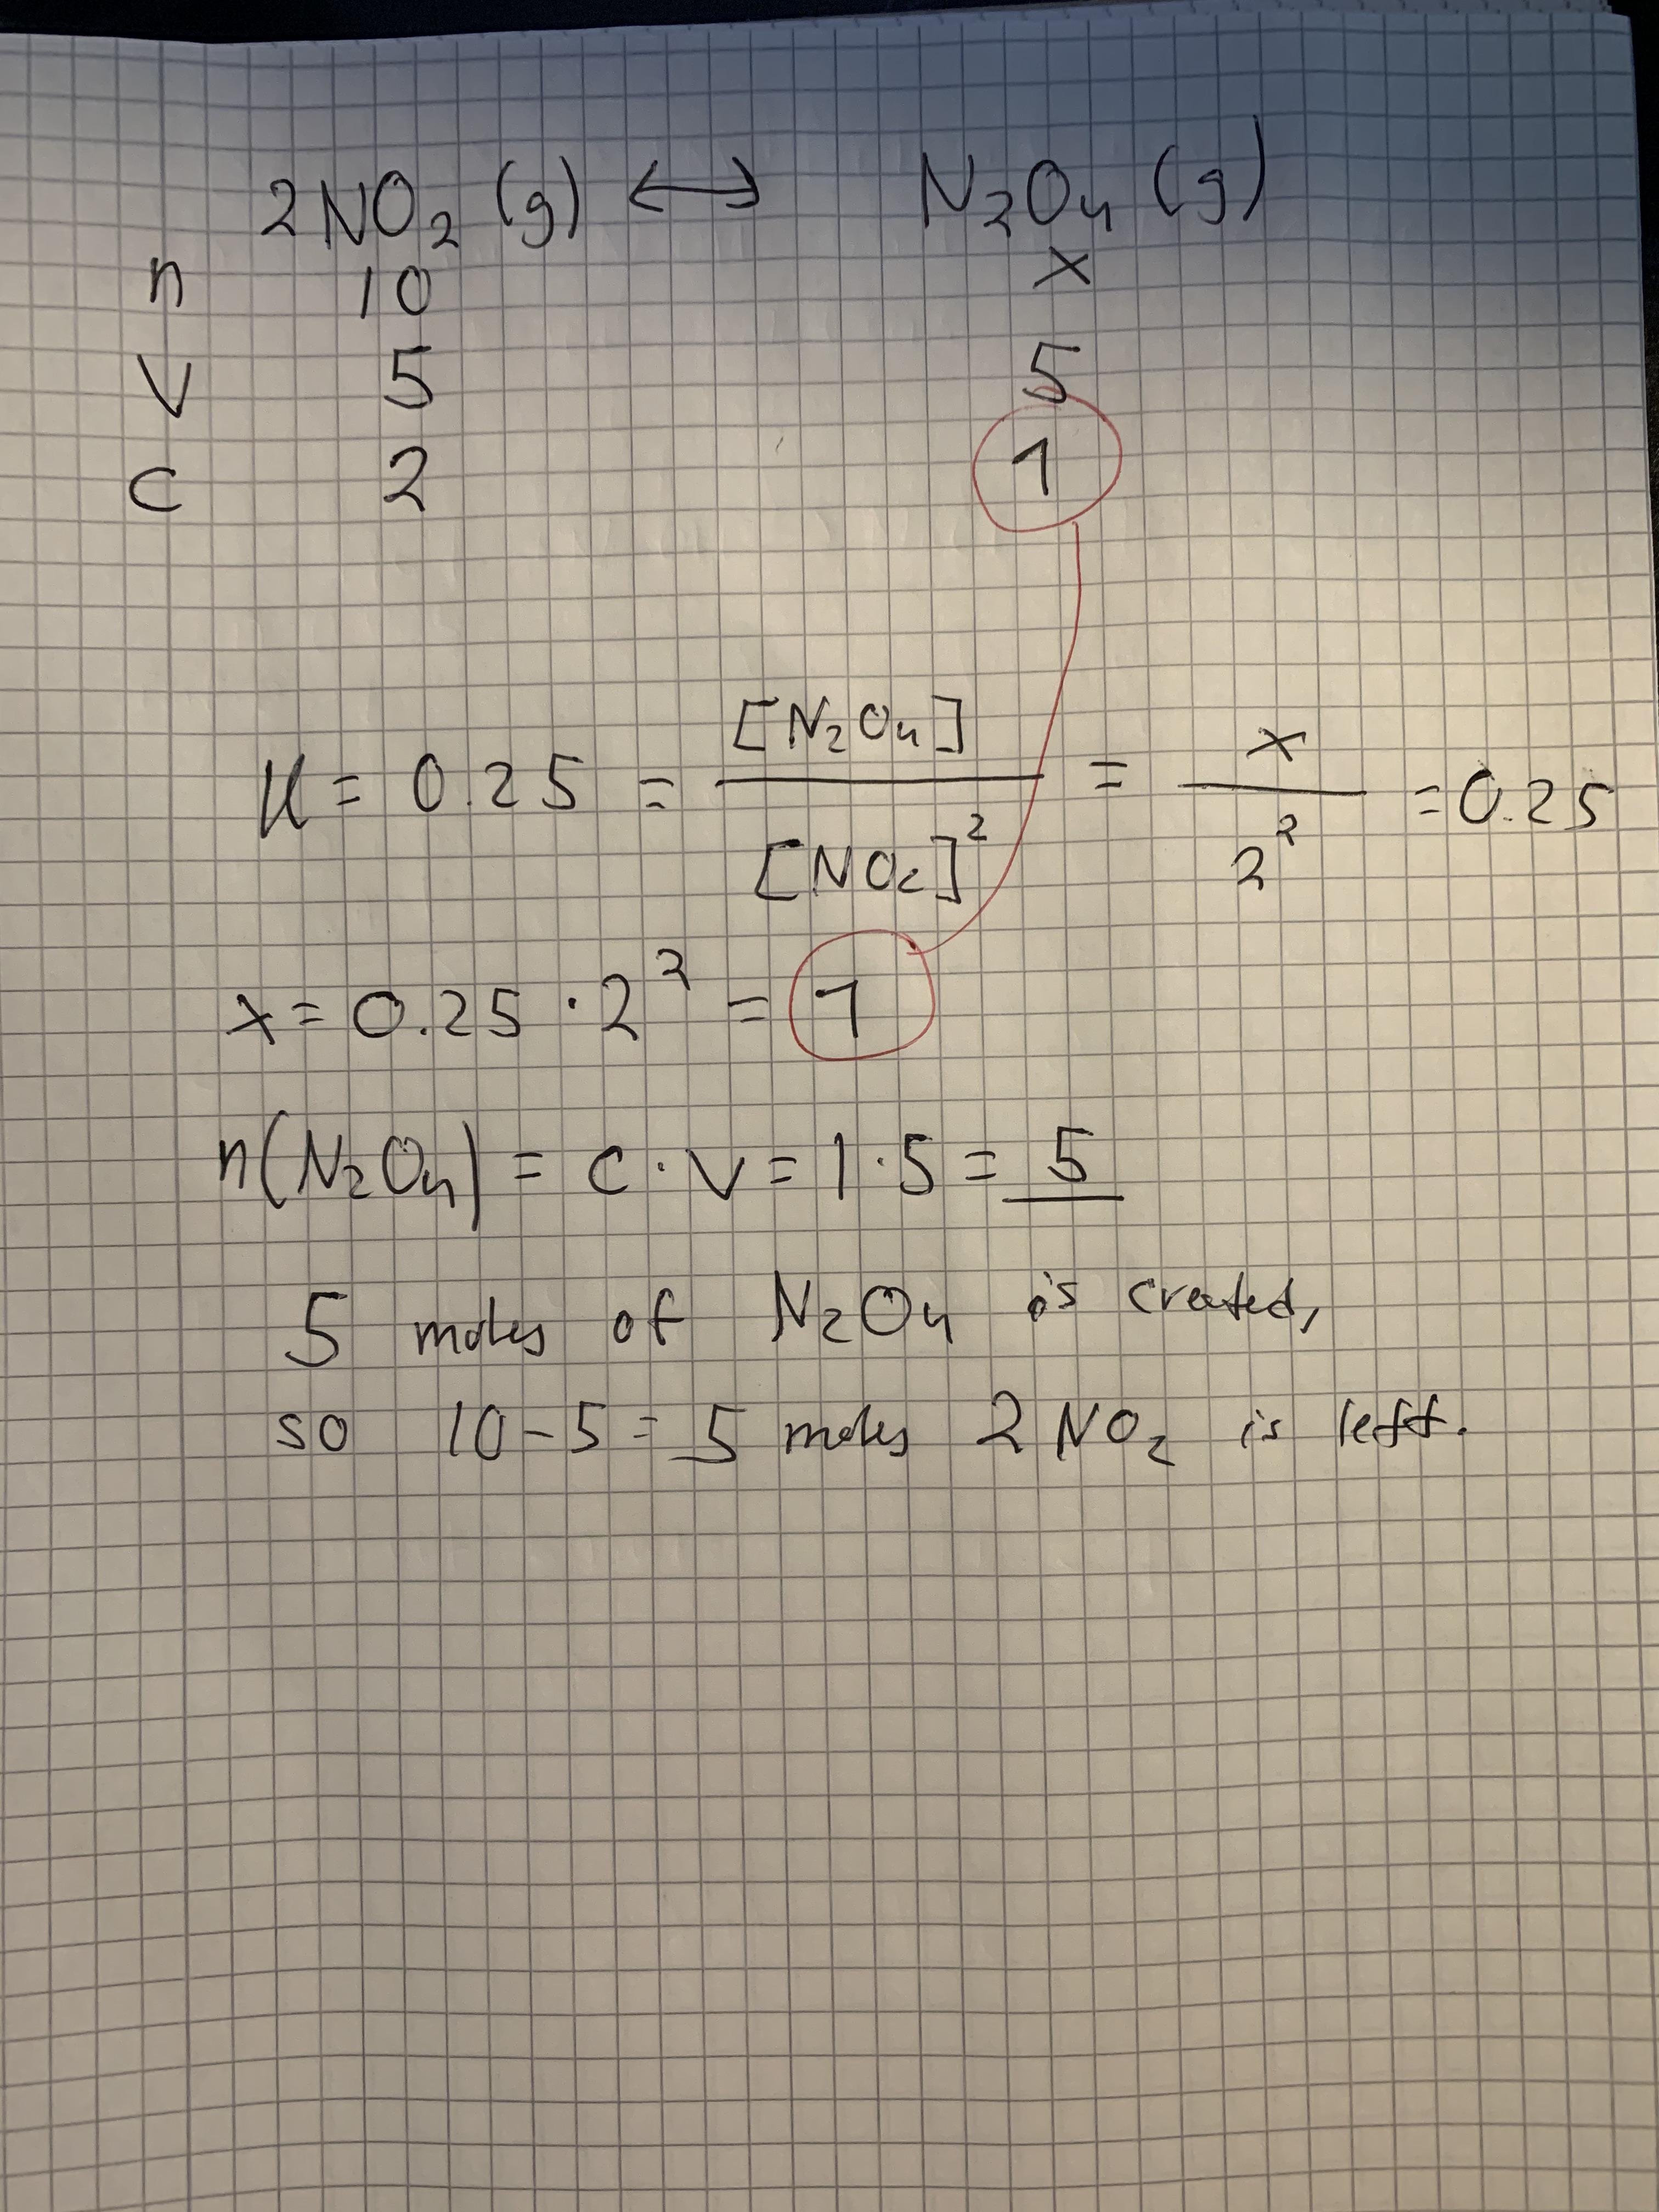 2NO₂ (g) ⟷ N₂O₄ (g)
n 10 x
V 5 5
c 2 1
K = 0.25 = [N₂O₄] / [NO₂]² = x / 2² = 0.25
x = 0.25 · 2² = 1
n(N₂O₄) = c · V = 1 · 5 = 5
5 moles of N₂O₄ is created,
so 10 - 5 = 5 moles 2 NO₂ is left.